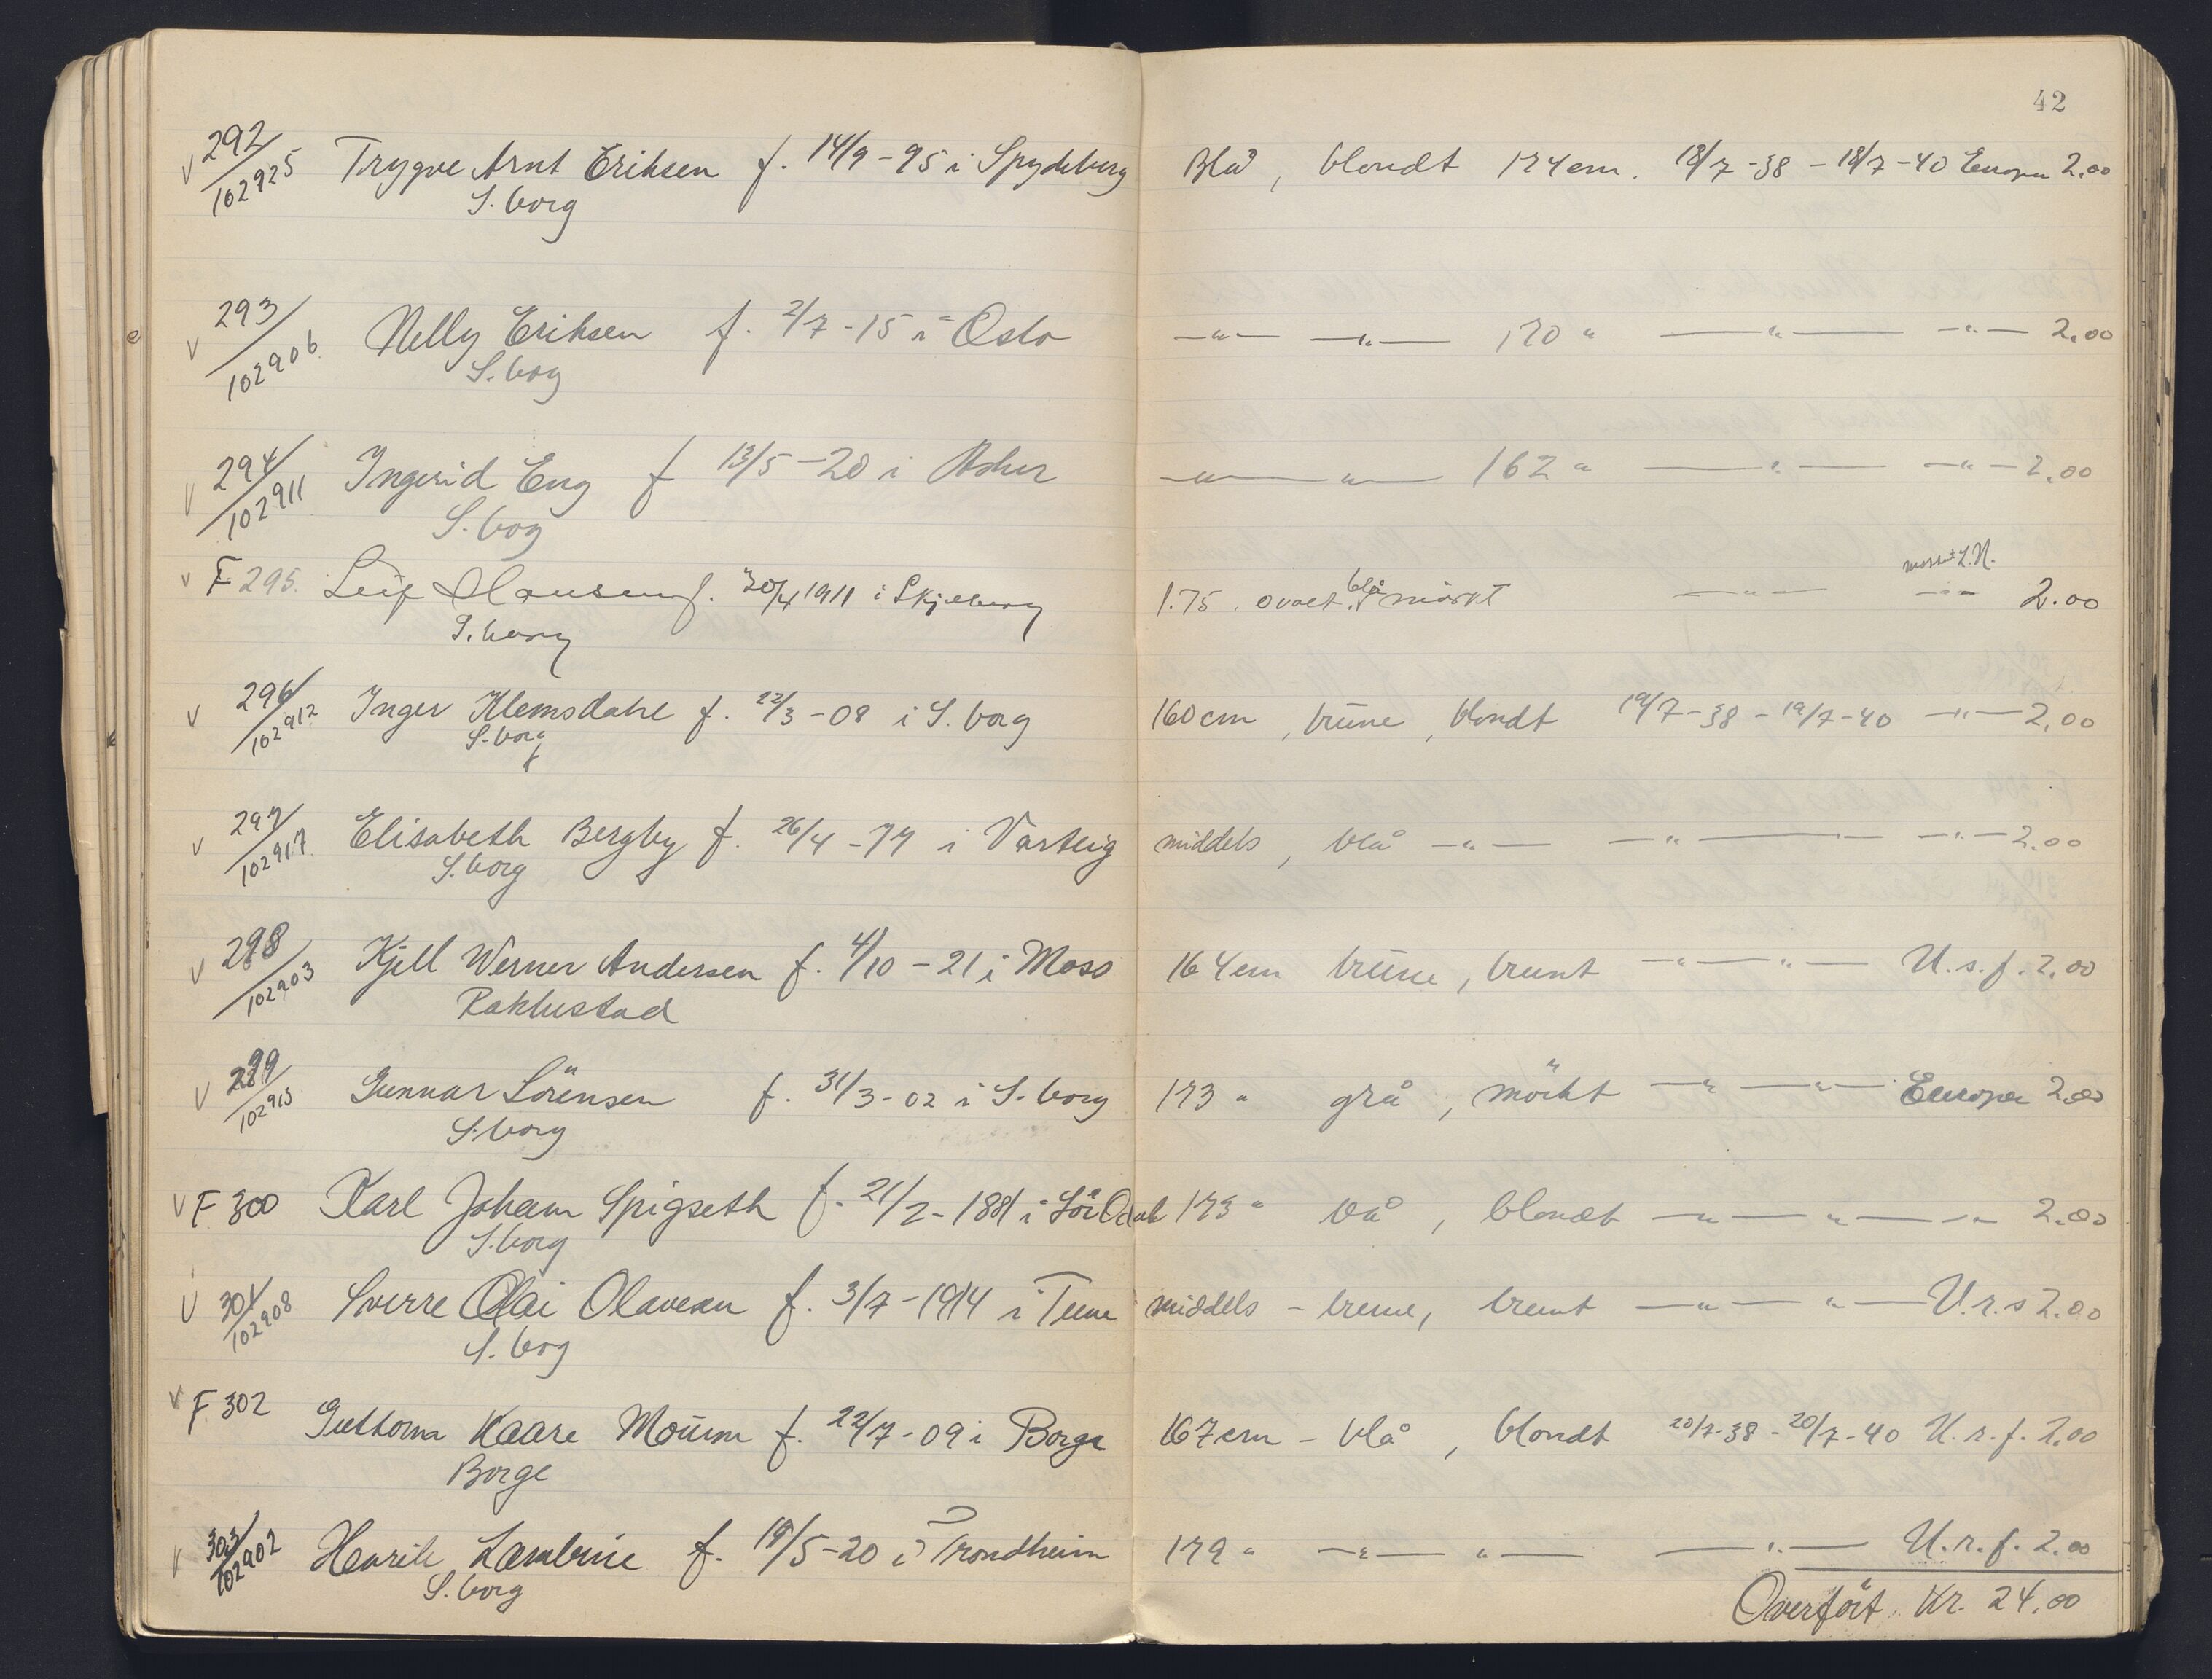 42
292/102925 Trygve Arnt Eriksen f. 14/9-95 i Spydeberg Blå, blondt 174 cm. 18/7-38 - 18/7-40 Europa 2.00
S.borg
293/102906 Nelly Eriksen f. 2/7-15 i Oslo —"— —"— 170 " —"— —"— 2.00
S.borg
294/102911 Ingerid Eng f 13/5-20 i Asker —"— —"— 162 " —"— —"— 2.00
S.borg
F 295. Leif Hansen f. 30/4 1911 i Skjeberg 1.75. ovalt. blå mörkt —"— —"— 2.00
S.borg
296/102912 Inger Klemsdahl f. 22/3-08 i S.borg 160 cm, brune, blondt 19/7-38 - 19/7-40 —"— 2.00
S.borg
297/102917 Elisabeth Bergby f. 26/4-77 i Varteig middels, blå —"— —"— —"— —"— 2.00
S.borg
298/102903 Kjell Werner Andersen f. 4/10-21 i Moss 164 cm brune, brunt —"— —"— U.s.f. 2.00
Rakkestad
299/102915 Gunnar Sörensen f. 31/3-02 i S.borg 173 " grå, mörkt —"— —"— Europa 2.00
S.borg
F 300 Karl Johan Spigseth f. 21/2-1881 i Sör Odal 173 " blå, blondt —"— —"— —"— 2.00
S.borg
301/102908 Sverre Olai Olavesen f. 3/7-1914 i Tune middels - brune, brunt —"— "— U.r.s 2.00
S.borg
F 302 Guttorm Kaare Moum f. 22/7-09 i Borge 167 cm - blå, blondt 20/7-38 - 20/7-40 U.r.f. 2.00
Borge
303/102902 Henrik f. 19/5-20 i Trondheim 179 " —"— "— —"— U.r.f. 2.00
S.borg
Overfört Kr. 24.00